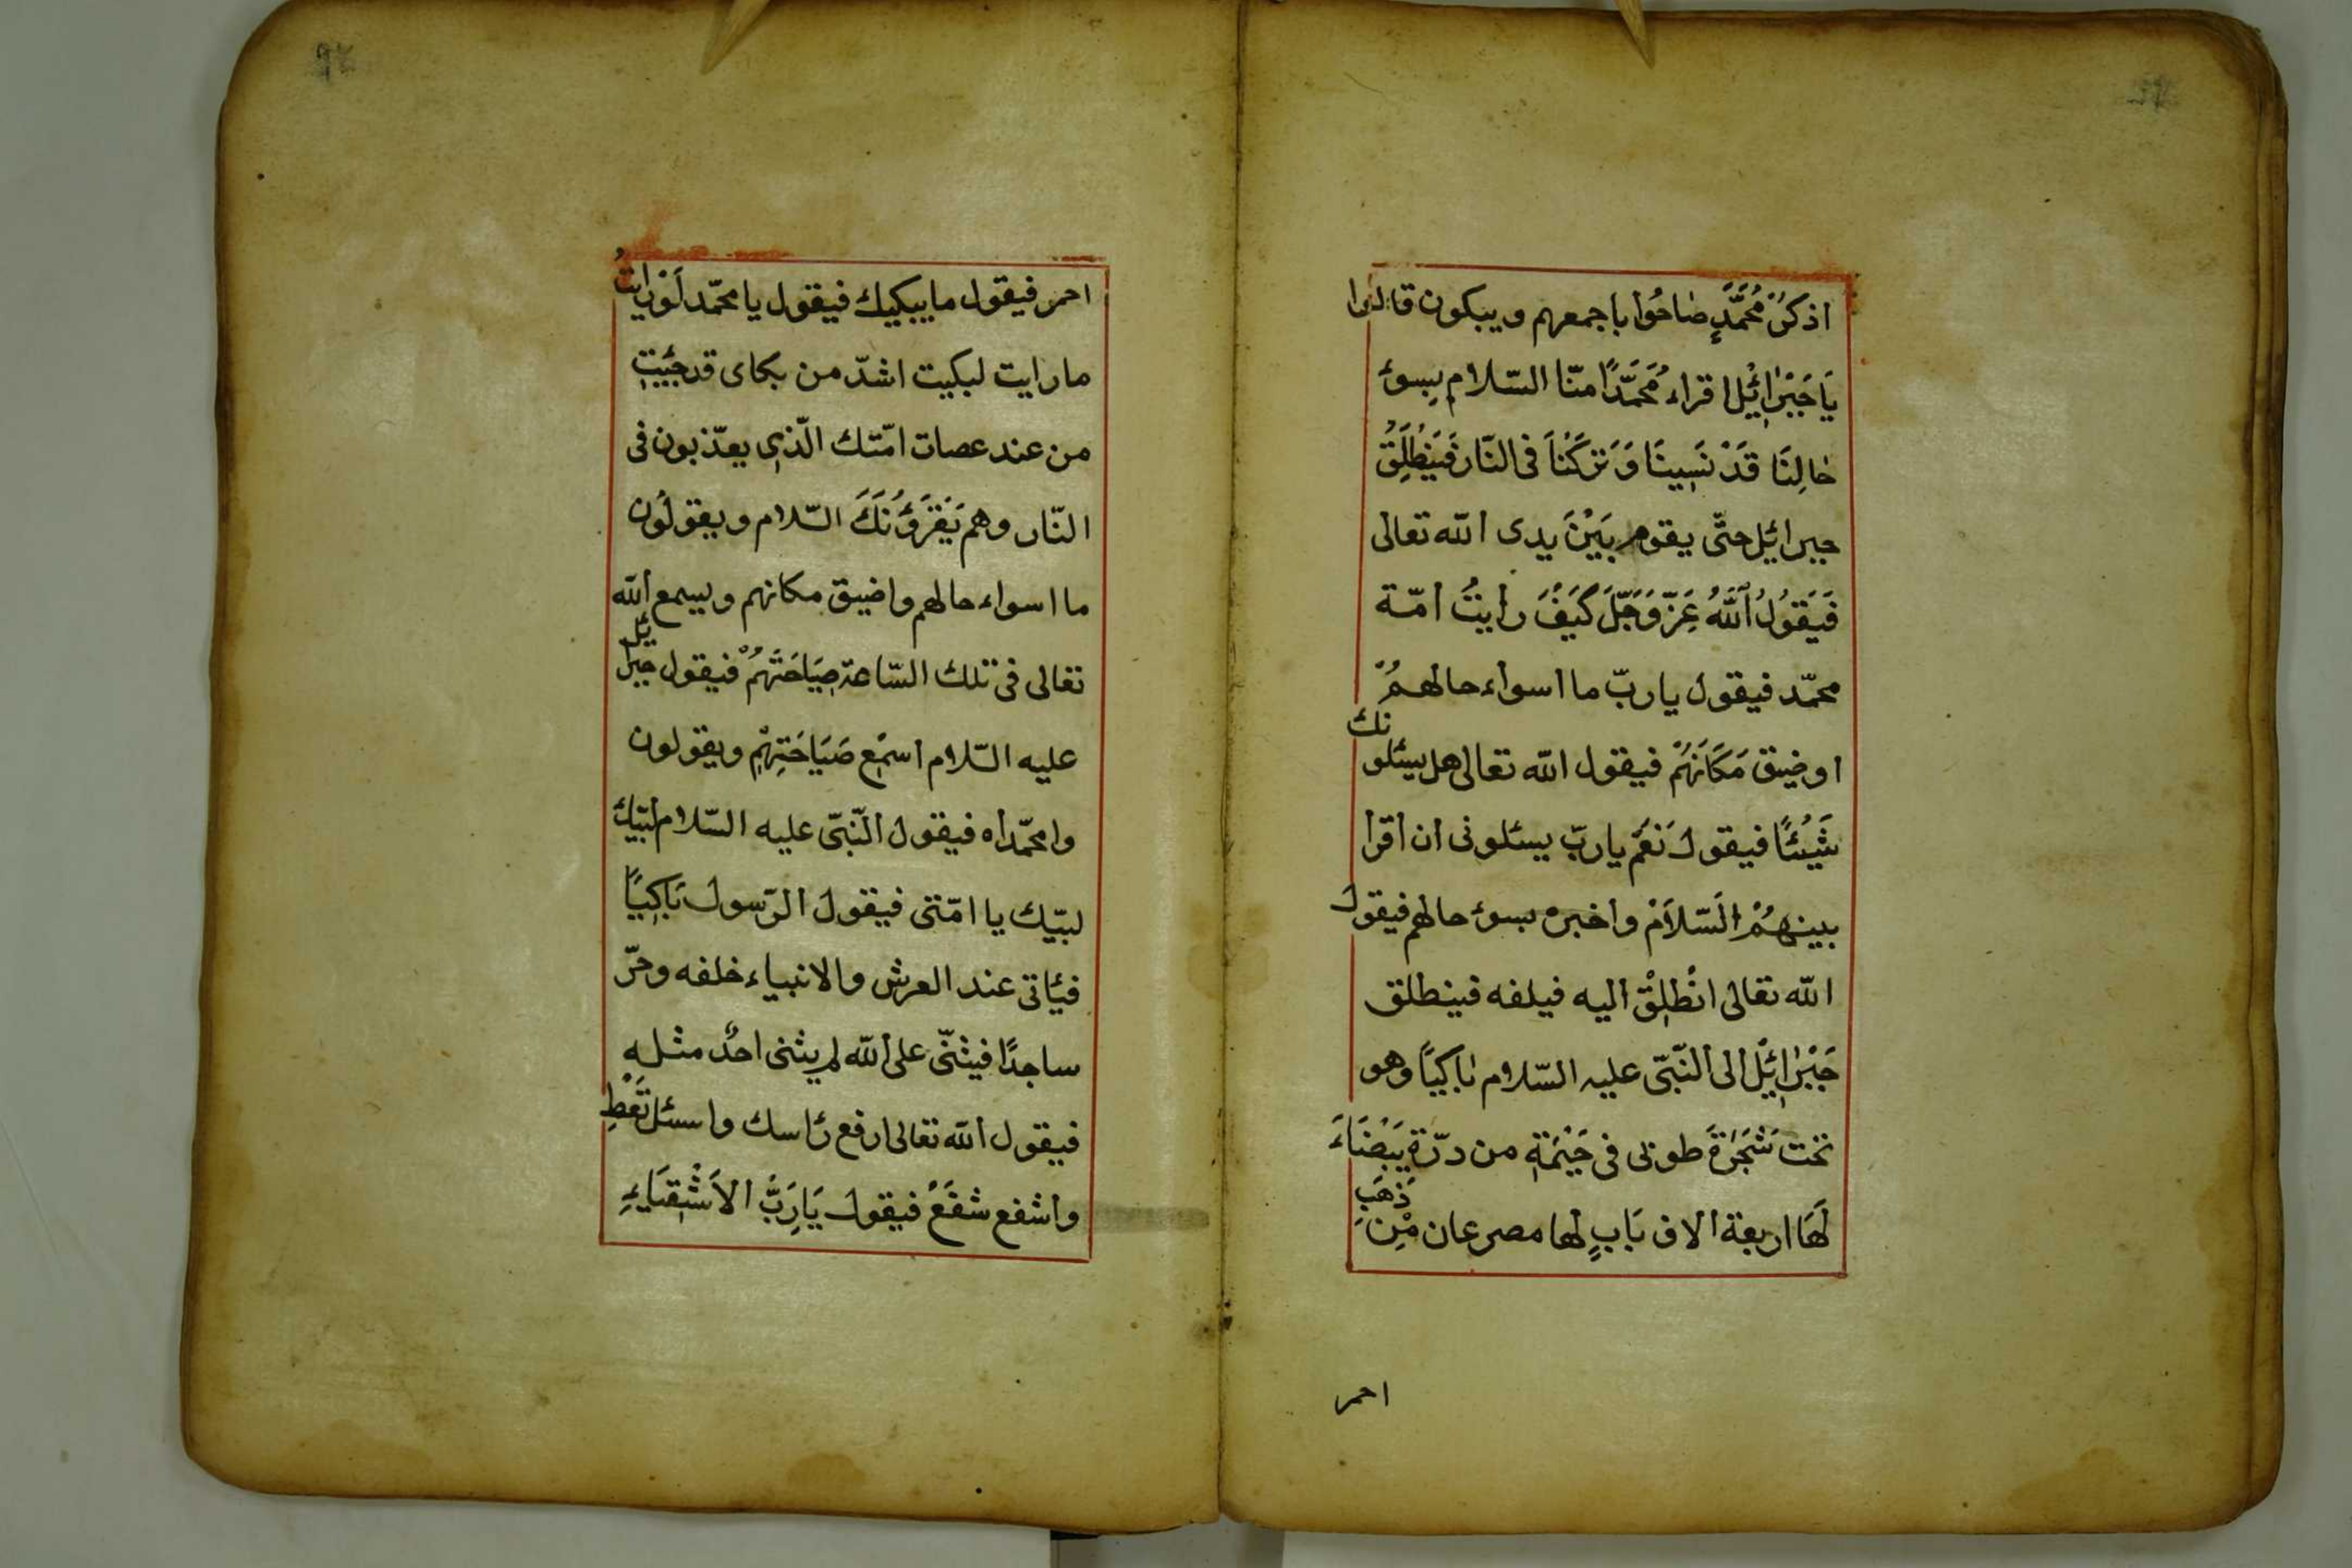 اذكرُ مُحَمَّدٍ صَاحُوا باجمعهم ويبكون قالوا
يَا جَبْرَائِيْلُ اقراء مُحَمَّدًا منّا السّلام بِسوئ
حَالِنَا قَدْ نَسِينَا وَتَرَكَنَا فى النّار فَيَنْطَلِقُ
جبرائيل حتّى يقوم بَيْنَ يدى الله تعالى
فَيَقُولُ اللَّهُ عَزَّ وَجَلَّ كَيْفَ رايتُ امّة
محمّد فيقول يا ربّ ما اسواء حالهمُ
اوضيق مَكَانَهُمْ فيقول الله تعالى هل يسئلونك
شَيْئًا فيقول نَعَمْ يا ربّ يسئلونى ان اقرا
بينهُمْ السّلاَمْ واخبره بسوء حالهم فيقول
الله تعالى انْطَلِقْ اليه فيلفه فينطلق
جَبْرَائِيْلُ الى النّبىّ عليه السّلام بَاكِيًا وهو
تحت شَجَرَةَ طوبى فى خَيْمَةِ من درّة بَيْضَاءَ
لَهَا اربعة الاف بَابٍ لها مصرعان مِنْ ذَهَبِ
احمر
احمر فيقول ما يبكيك فيقول يا محمّد لَوْ رايتُ
ما رايت لبكيت اشدّ من بكاى قد جئيت
من عند عصات امّتك الّذى يعذّبون فى
النّار وهم يَقْرَؤُنَكَ السّلام ويقولُون
ما اسواء حالهم واضيق مكانهم ويسمع الله
تعالى فى تلك السّاعة صِيَاحَتَهُمْ فيقول جبرائيل
عليه السّلام اسْمَع صَيَاحَتِهِمْ ويقولون
وامحمّداه فيقول النّبىّ عليه السّلام لبّيك
لبّيك يا امّتى فيقول الرّسول بَاكِيًا
فيئاتى عند العرش والانبياء خلفه وخرّ
ساجدًا فيثنّى على الله لم يثنى احدٌ مثله
فيقول الله تعالى ارفع رئاسك واسئل تَعْطِ
واشفع شفَعْ فيقول يَارَبِّ الاَشْقِيَاءِ